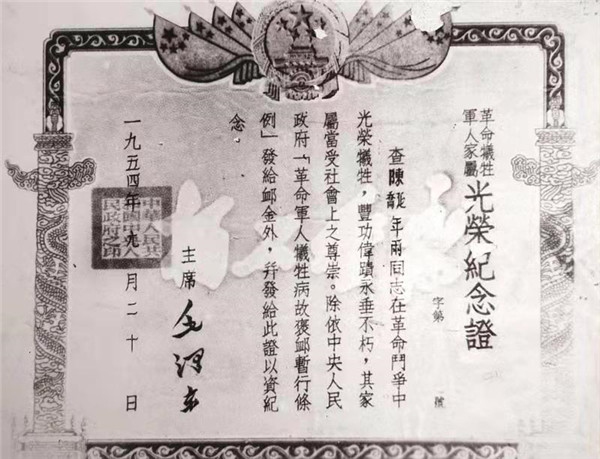 革命犧牲
軍人家屬
光榮紀念證
字第 號
查陳龍年兩同志在革命鬥爭中
光榮犧牲，豐功偉蹟永垂不朽，其家
屬當受社會上之尊崇。除依中央人民
政府「革命軍人犧牲病故褒卹暫行條
例」發給卹金外，幷發給此證以資紀
念。
主席 毛澤東
一九五四年九月二十日
中華人民共
和國中央人
民政府之印